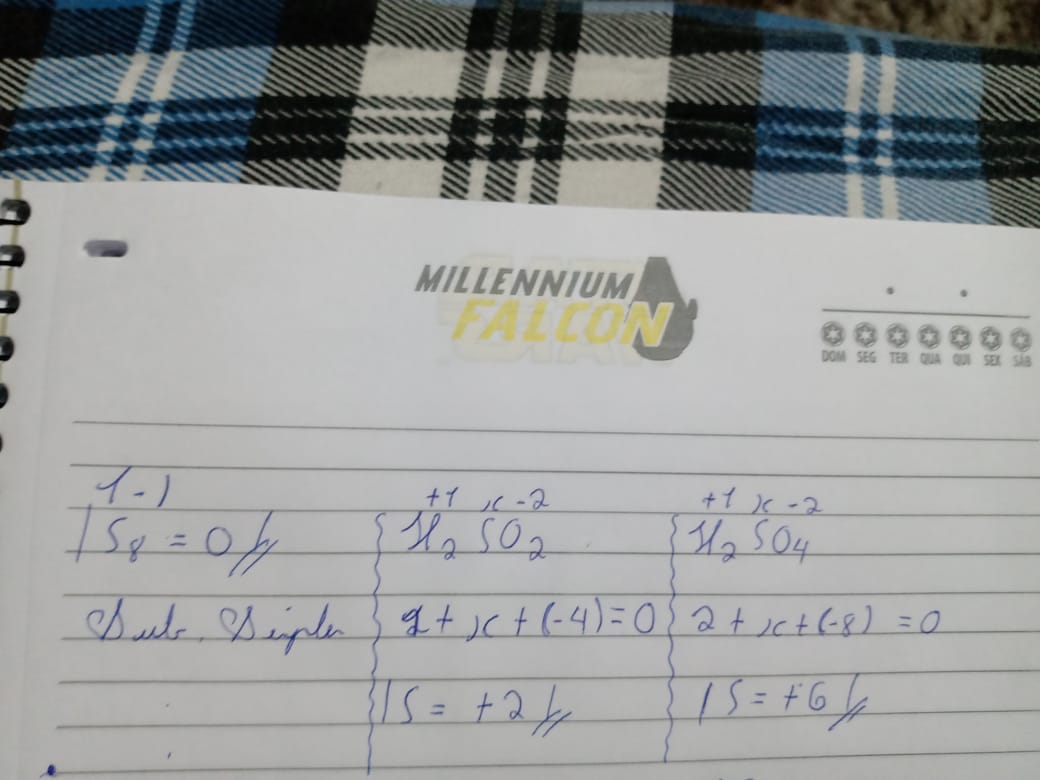 MILLENNIUM
FALCON
DOM SEG TER QUA QUI SEX SÁB
1-)
S₈ = 0
Sub. Simples
+1 x -2
H₂SO₂
2 + x + (-4) = 0
S = +2
+1 x -2
H₂SO₄
2 + x + (-8) = 0
S = +6